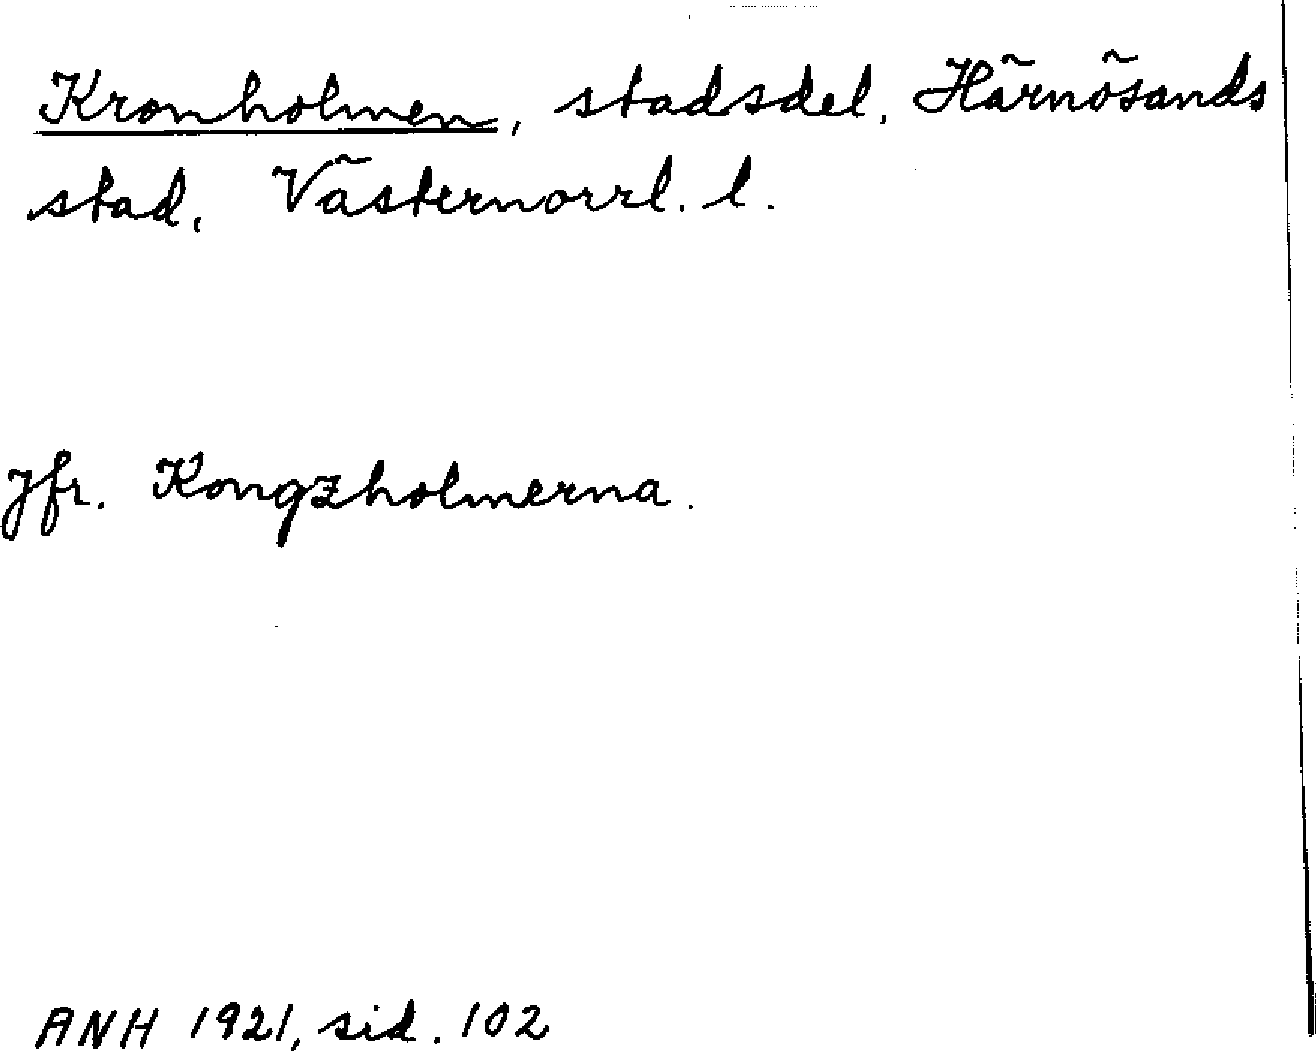 Kronholmen, stadsdel, Härnösands
stad, Västernorrl. l.
Jfr. Kongzholmerna.
ANH 1921, sid. 102